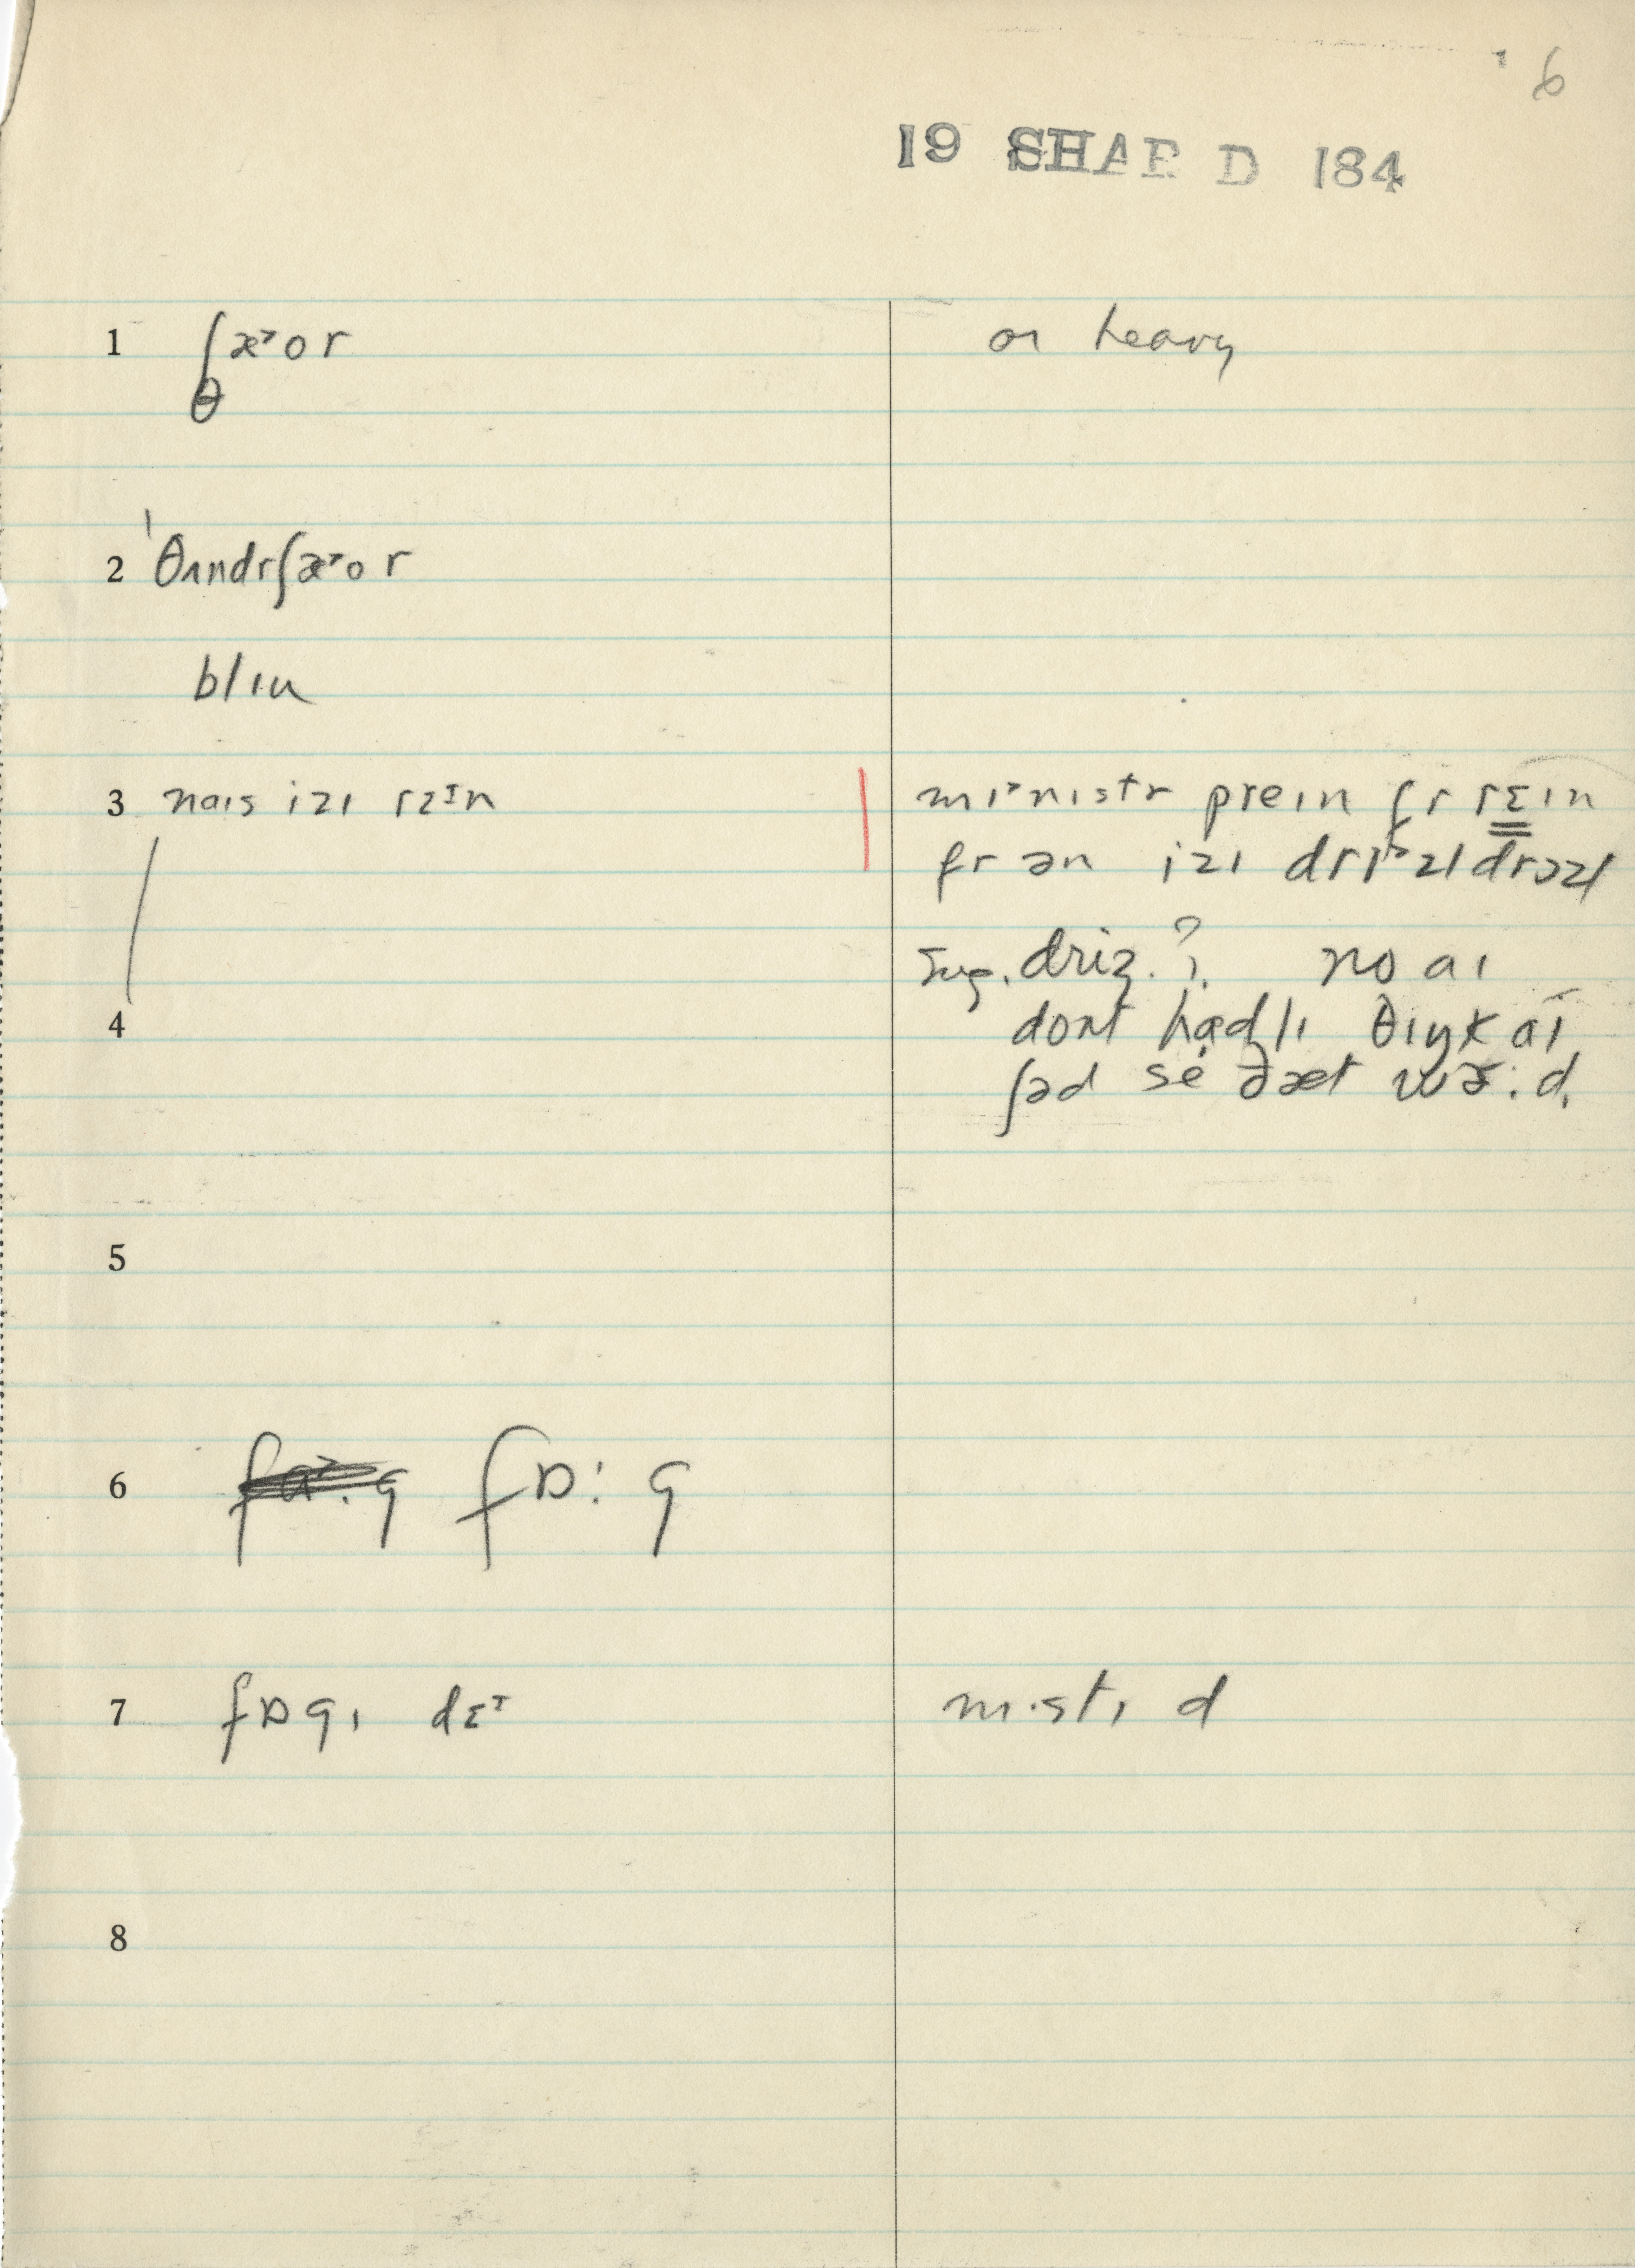 6
19 SHAR D 184
1 ʃæ˃or or heavy
θ
2 ˈθʌndrʃæ˃or
blɪu
3 naɪs izɪ rɛɪn mɪ˃nɪstr preɪn fr rɛɪn
fr ən izɪ drɪ˃zl drɔzl
Sug. driz.? no aɪ
4 dont hadlɪ θɪŋk aɪ
ʃəd se ðæt wɜ:d.
5
6 fɒ: g
7 fɒgɪ dɛɪ mɪstɪ d
8